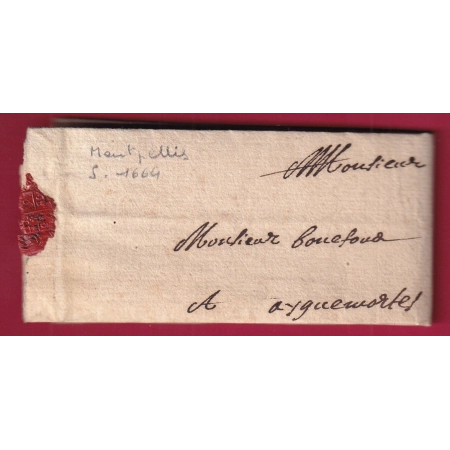 Montpellier
S. -1664
Monsieur
Monsieur bonefoux
A ayguemortes